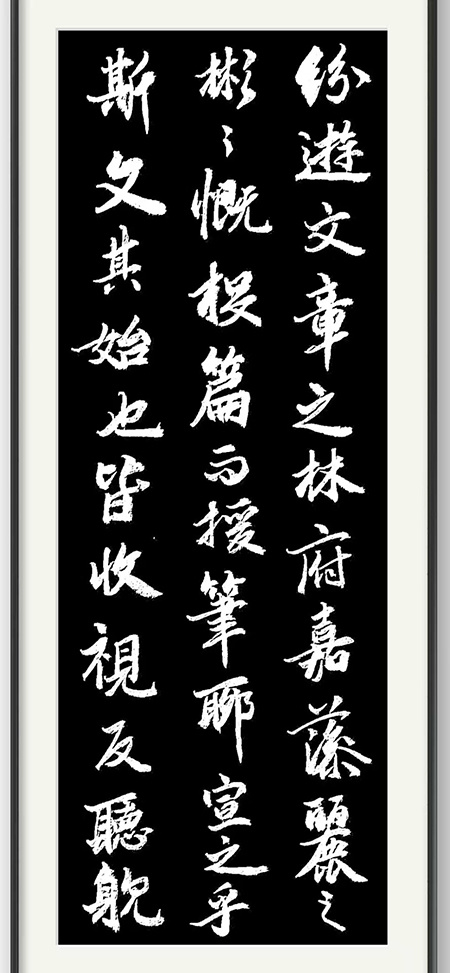 紛遊文章之林府嘉藻麗之
彬々慨投篇而援筆聊宣之乎
斯文其始也皆收視反聽躭